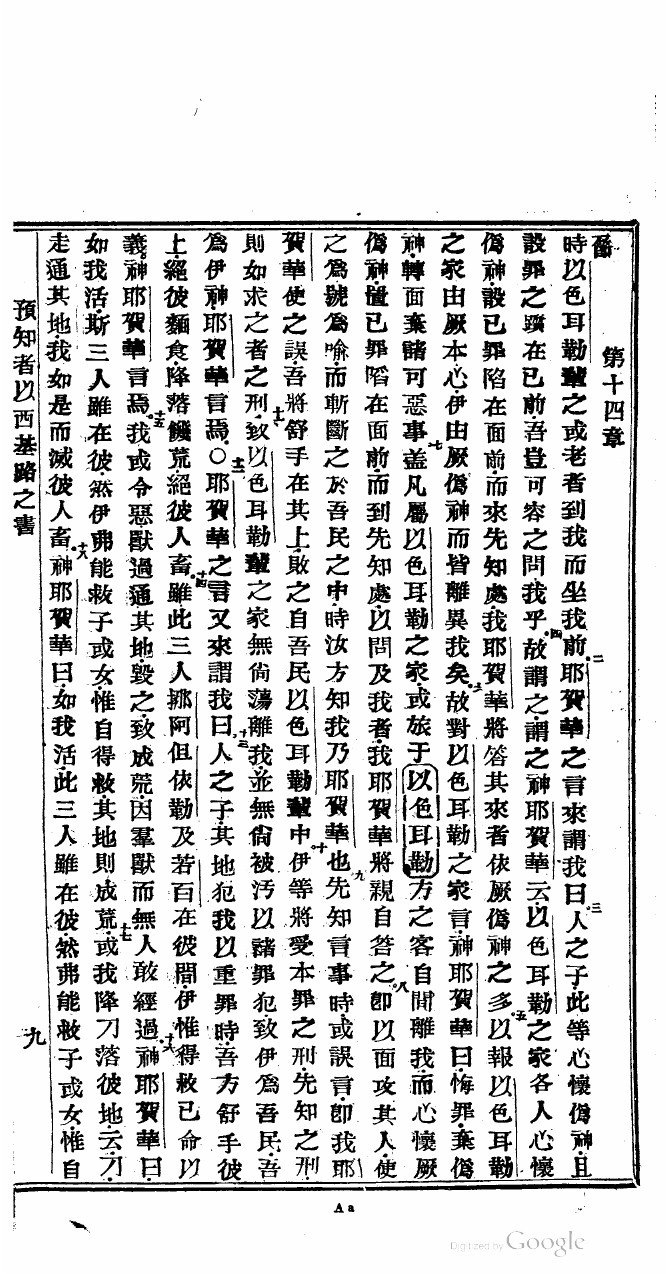 第十四章
時以色耳勒輩之或老者到我而坐我前二耶賀華之言來謂我曰三人之子此等心懷偽神且
設罪之躓在己前吾豈可容之問我乎四故謂之謂之神耶賀華云以色耳勒之家各人心懷
偽神設己罪陷在面前而來先知處我耶賀華將答其來者依厥偽神之多五以報以色耳勒
之家由厥本心伊由厥偽神而皆離異我矣六故對以色耳勒之家言神耶賀華曰悔罪棄偽
神轉面棄諸可惡事七蓋凡屬以色耳勒之家或旅于以色耳勒方之客自間離我而心懷厥
偽神置己罪陷在面前而到先知處以問及我者我耶賀華將親自答之八卽以面攻其人使
之為號為喻而斬斷之於吾民之中時汝方知我乃耶賀華也九先知言事時或誤言卽我耶
賀華使之誤吾將舒手在其上敗之自吾民以色耳勒輩中十伊等將受本罪之刑先知之刑
則如求之者之刑十一致以色耳勒輩之家無尚蕩離我並無尚被汚以諸罪犯致伊為吾民吾
為伊神耶賀華言焉○十二耶賀華之言又來謂我曰十三人之子其地犯我以重罪時吾方舒手彼
上絕彼麵食降落饑荒絕彼人畜十四雖此三人挪阿但依勒及若百在彼間伊惟得救己命以
義神耶賀華言焉十五我或令惡獸過通其地毀之致成荒因羣獸而無人敢經過十六神耶賀華曰
如我活斯三人雖在彼然伊弗能救子或女惟自得救其地則成荒十七或我降刀落彼地云刀
走通其地我如是而滅彼人畜十八神耶賀華曰如我活此三人雖在彼然弗能救子或女惟自
預知者以西基路之書
九
Aa
Digitized by Google